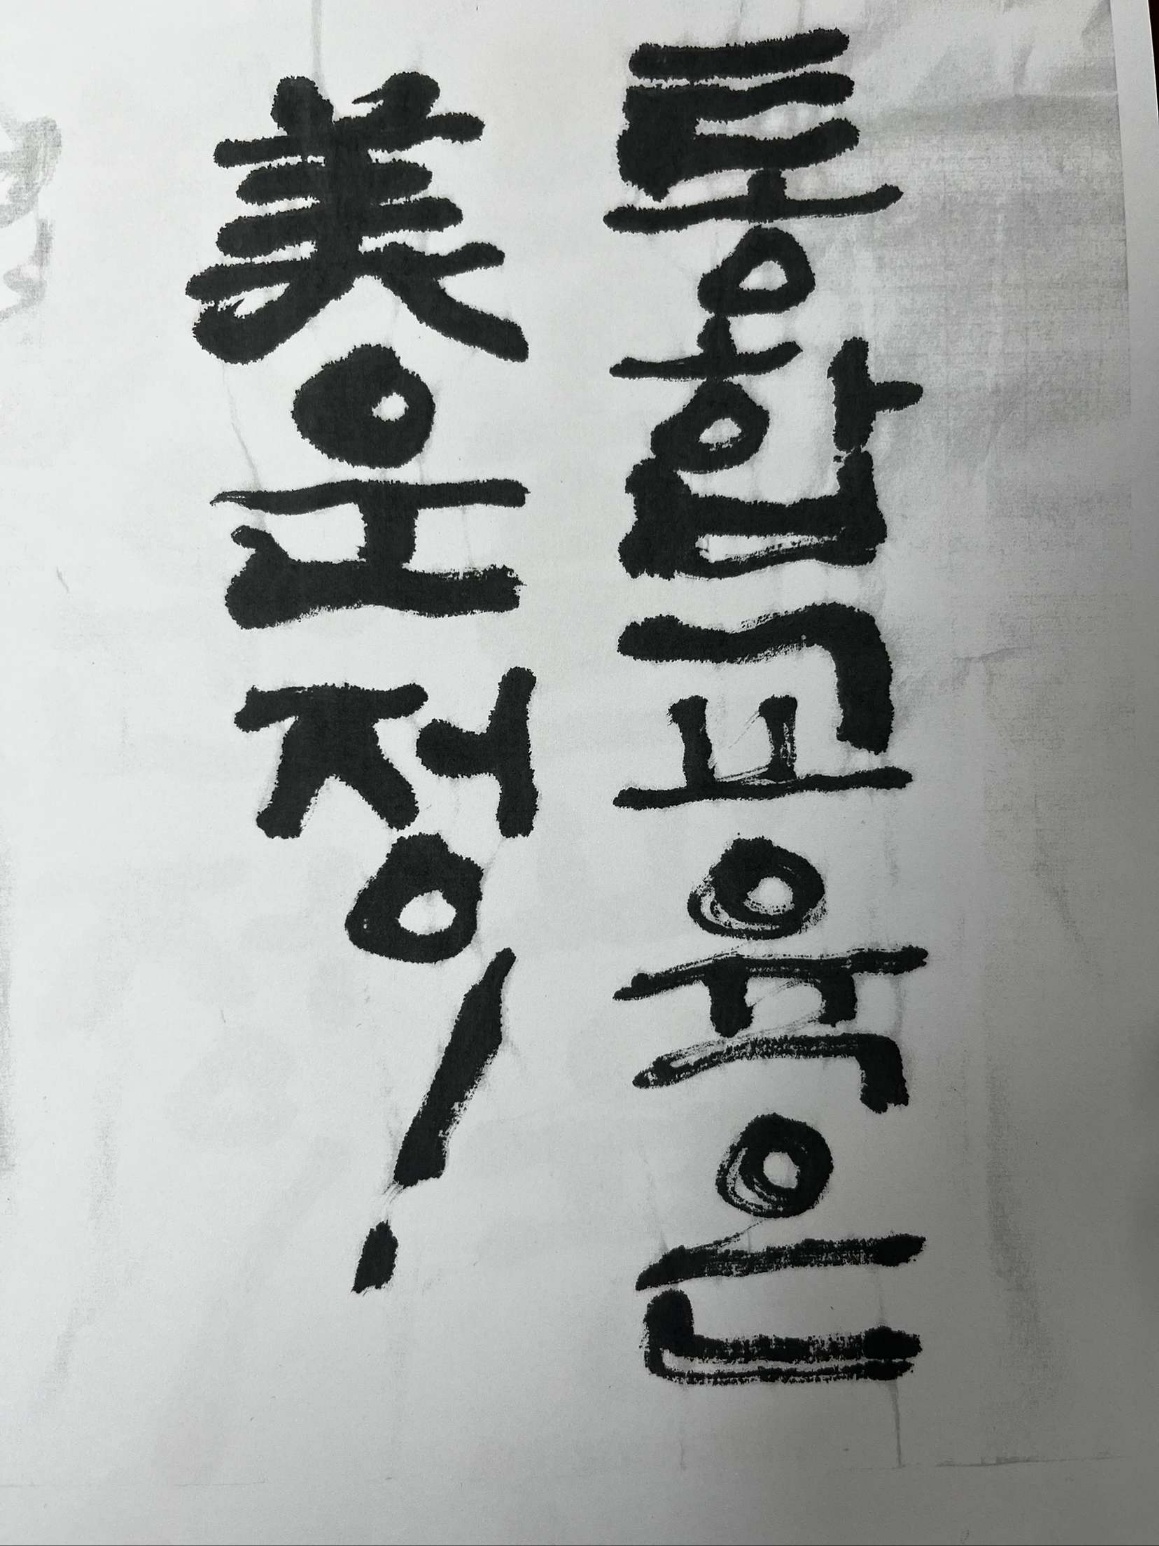 통합교육은
美운정!